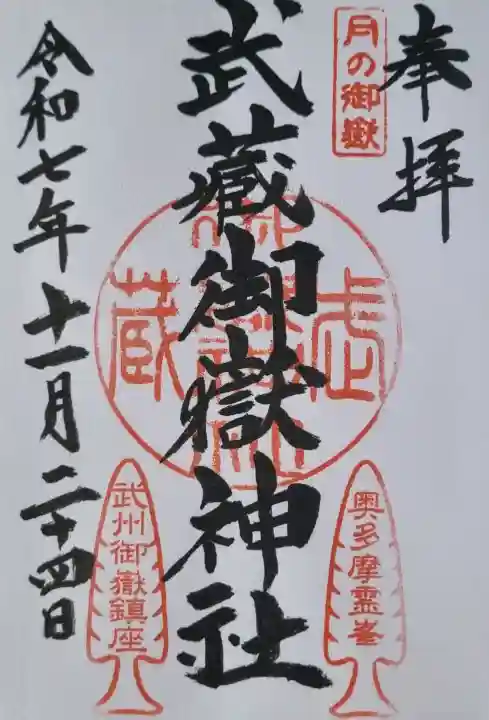 奉拝
月の御嶽
奥多摩霊峯
武蔵御嶽神社
武州御嶽鎮座
令和七年十一月二十四日